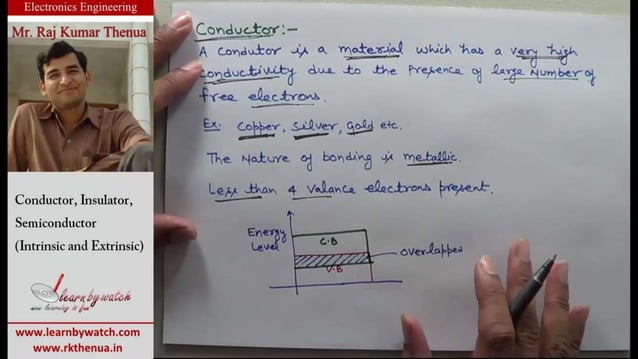 Electronics Engineering
Mr. Raj Kumar Thenua
Conductor, Insulator,
Semiconductor
(Intrinsic and Extrinsic)
learnbywatch
now learning is fun
www.learnbywatch.com
www.rkthenua.in
Conductor:-
A Condutor is a material which has a very high
Conductivity due to the Presence of large Number of
free electrons.
Ex. Copper, Silver, Gold etc.
The Nature of bonding is metallic.
Less than 4 Valance electrons present.
Energy
Level
C.B
overlapped
V.B